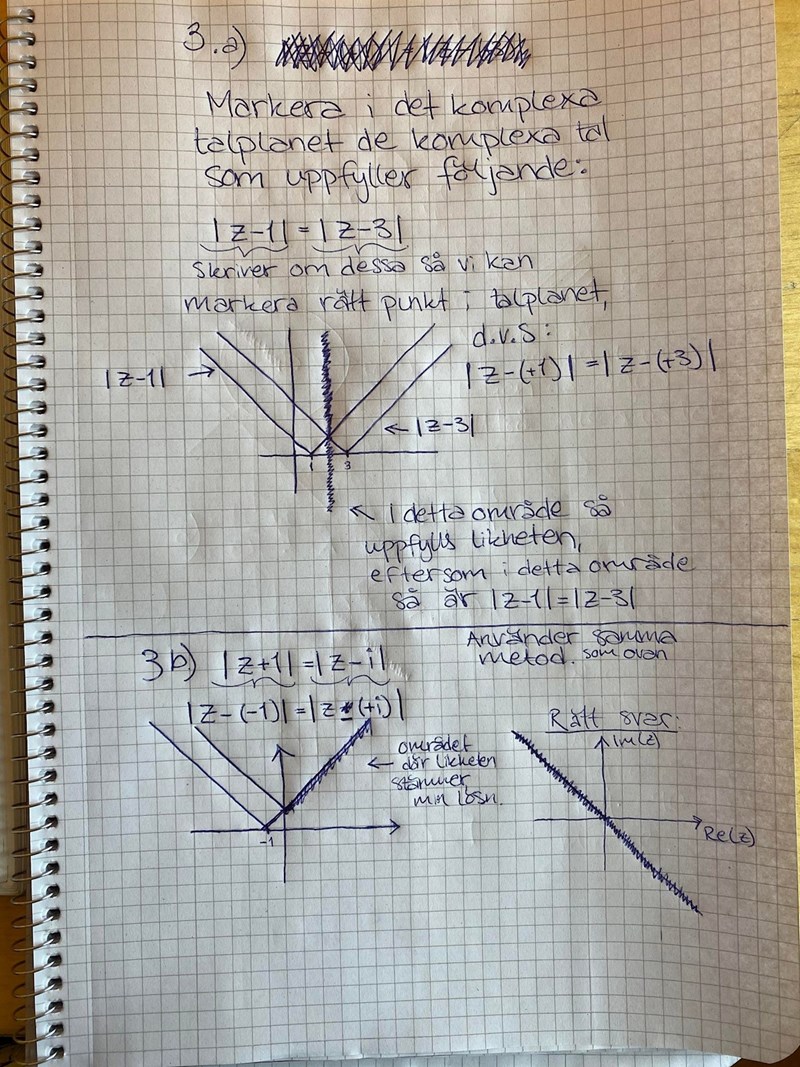 3.a)
Markera i det komplexa
talplanet de komplexa tal
som uppfyller följande:
|z-1| = |z-3|
skriver om dessa så vi kan
markera rätt punkt i talplanet,
d.v.s:
|z-(+1)| = |z-(+3)|
|z-1| →
← |z-3|
1 3
↖ I detta område så
uppfylls likheten,
eftersom i detta område
så är |z-1|=|z-3|
3b) |z+1| = |z-i|
Använder samma
metod. som ovan
|z-(-1)| = |z-(+i)|
området
← där likheten
stämmer
min lösn.
-1
Rätt svar:
Im(z)
Re(z)